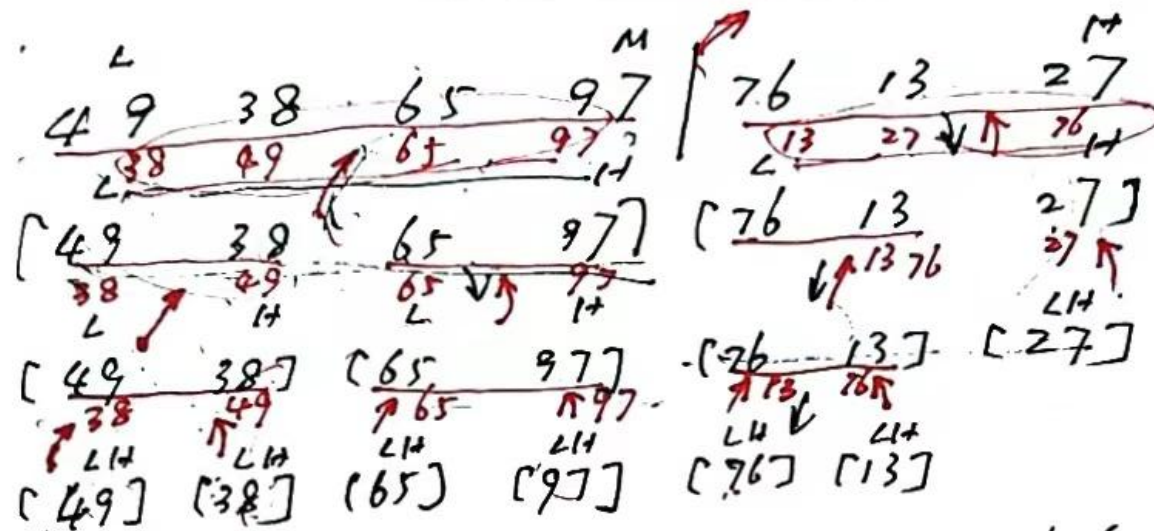 L M H
49 38 65 97 76 13 27
38 49 65 97 13 27 76
L H L H
[49 38 65 97] [76 13 27]
38 49 65 97 13 76 27
L H L H LH
[49 38] [65 97] [76 13] [27]
38 49 65 97 13 76
LH LH LH LH LH
[49] [38] [65] [97] [76] [13]